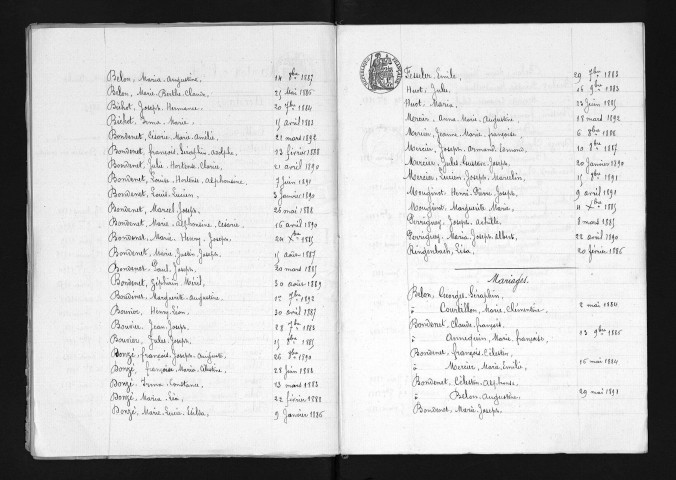 Belon, Maria Augustine, 14 8bre 1887
Belon, Marie Berthe Claude, 25 Mai 1886
Bichot, Joseph Hermance, 20 7bre 1884
Bichot, Irma Marie, 15 avril 1883
Bondenet, Césarie Marie Amélie, 22 mars 1892
Bondenet, françois Séraphin adolphe, 23 février 1888
Bondenet, Julie Hortense Clarice, 21 avril 1890
Bondenet, Louise Hortense, alphonsine, 7 Juin 1891
Bondenet, Louis Lucien, 3 Janvier 1890
Bondenet, Marcel Joseph, 26 mai 1888
Bondenet, Marie Alphonsine, Césarie, 16 avril 1890
Bondenet, Marie Henry Joseph, 24 Xbre 1885
Bondenet, Marie Justin Joseph, 15 août 1887
Bondenet, Paul Joseph, 20 mars 1885
Bondenet, Zéphirin 30 août 1889
Bondenet, Marguerite augustine, 1er 7bre 1892
Bouvier, Henry Léon, 30 avril 1887
Bouvier, Jean Joseph, 28 7bre 1883
Bouvier, Jules Joseph, 15 9bre 1885
Bonzé, françois Joseph Auguste, 26 8bre 1890
Bonzé, françoise Maria Célestine, 28 Juin 1888
Bonzé, Irma Constance, 23 mars 1883
Bonzé, Maria Léa, 22 février 1888
Bonzé, Marie Lucie Hilda, 9 Janvier 1886
Fesseler, Emile, 29 7bre 1883
Huot, Jules, 16 9bre 1883
Huot, Maria, 23 Juin 1885
Mercier, Anna Marie Augustine, 18 mars 1892
Mercier, Jeanne Marie françoise, 6 8bre 1886
Mercier, Joseph Armand Edmond, 10 8bre 1887
Mercier, Jules Lucien Joseph, 20 Janvier 1890
Mercier, Lucien Joseph Marcelin, 15 8bre 1891
Mouginot, Henri Pierre Joseph, 9 avril 1891
Mouginot, Marguerite Marie, 11 Xbre 1885
Perriguey, Joseph Achille, 8 mars 1885
Perriguey, Maria Joseph Albert, 22 avril 1890
Ringenbach, Lisa, 20 février 1886
Mariages.
Belon, Georges Séraphin,
& Courtillon, Marie Clémentine, 2 mai 1884
Bondenet, Claude françois,
& Annequin, Marie françoise, 13 9bre 1886
Bondenet, françois Célestin,
& Mercier, Maria Emélie, 16 mai 1884
Bondenet, Célestin Alphonse,
& Belon, Augustine, 29 mai 1891
Bondenet, Marie Joseph,